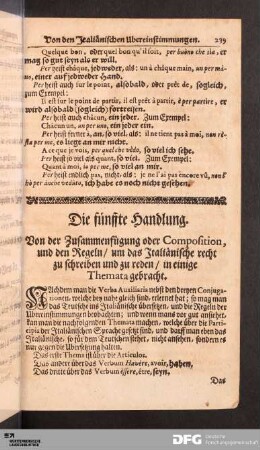 Von den Italiänischen Ubereinstimmungen. 299
Quelque bon, oder quel bon qu'il soit, per buono che sia, er
mag so gut seyn als er will.
Per heist châque, jedweder, als: un à châque main, un per ma-
no, einer auf jedweder Hand.
Per heist auch sur le point, alsobald, oder prêt de, sogleich,
zum Exempel:
Il est sur le point de partir, il est prêt à partir, è per partire, er
wird alsobald (sogleich) fortreisen.
Per heist auch châcun, ein jeder. Zum Exempel:
Châcun un, un per uno, ein jeder ein.
Per heist ferner à, an. so viel, als: il ne tient pas à moi, non re-
sta per me, es liegt an mir nicht.
A ce que je vois, per quel che vedo, so viel ich sehe.
Per heist so viel als quant, so viel. Zum Exempel:
Quant à moi, io per me, so viel an mir.
Per heist endlich pas, nicht, als: je ne l'ai pas encore vû, non l'
hò per ancòr veduto, ich habe es noch nicht gesehen.
Die fünffte Handlung.
Von der Zusammenfügung oder Composition,
und den Regeln / um das Italiänische recht
zu schreiben und zu reden / in einige
Themata gebracht.
Nachdem man die Verba Auxiliaria nebst den dreyen Conju-
gationen, welche des nahe gleich sind, erlernet hat; so mag man
das Teutsche ins Italiänische übersetzen, und die Regeln der
Ubereinstimmungen beobachten; und wenn mans vor gut ansiehet,
kan man die nachfolgenden Themata machen, welche über die Par-
ticipia der Italiänischen Sprache gesetzt sind, und darff man eben das
Italiänische, so für dem Teutschen stehet, nicht ansehen, sondern es
nur gegen die Ubersetzung halten.
Das erste Thema ist über die Articulos.
Das andere über das Verbum Havere, avoir, haben,
Das dritte über das Verbum essere, être, seyn.
Das
DFG Deutsche
Forschungsgemeinschaft